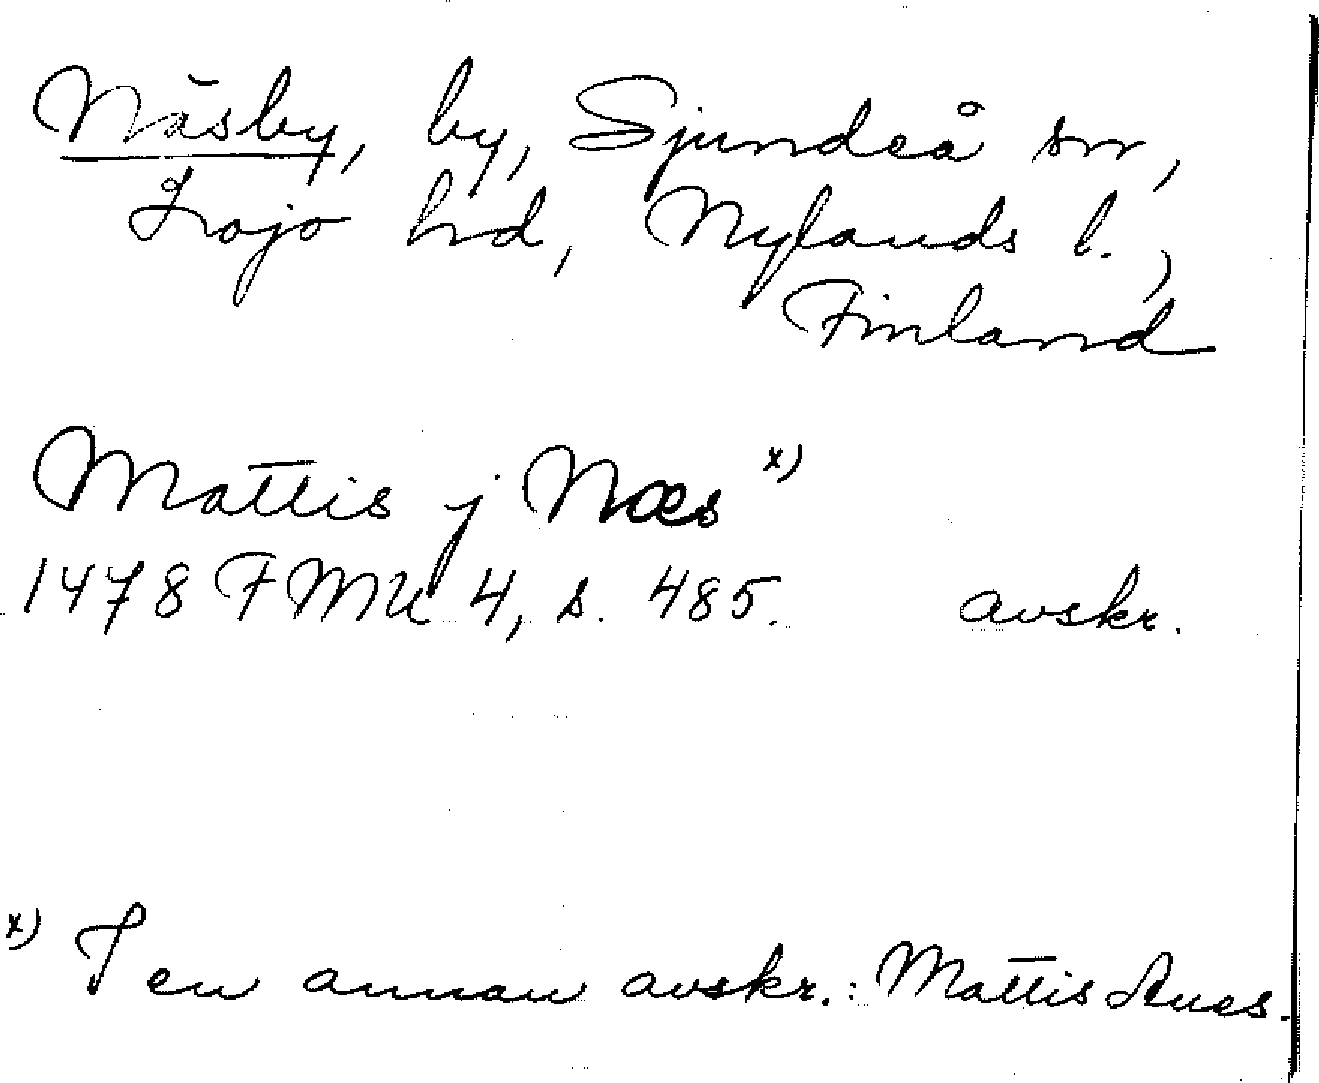 Näsby, by, Sjundeå sn,
Lojo hd, Nylands l.,
Finland
Mattis j Næs x)
1478 FMU 4, s. 485. avskr.
x) I en annan avskr.: Mattis Anes.